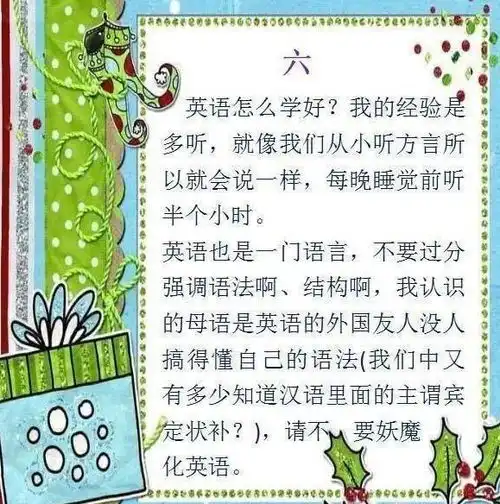 六
英语怎么学好？我的经验是
多听，就像我们从小听方言所
以就会说一样，每晚睡觉前听
半个小时。
英语也是一门语言，不要过分
强调语法啊、结构啊，我认识
的母语是英语的外国友人没人
搞得懂自己的语法(我们中又
有多少知道汉语里面的主谓宾
定状补？)，请不 要妖魔
化英语。